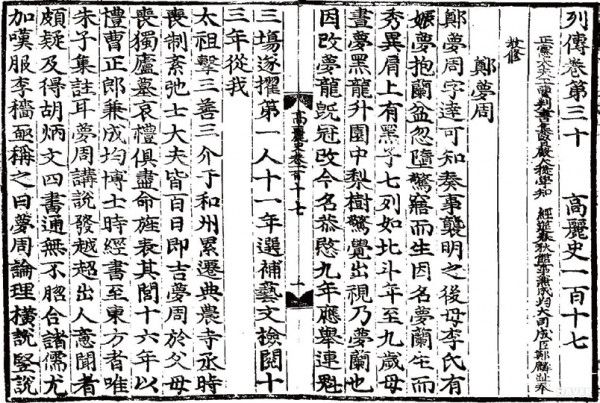 列傳卷第三十　高麗史一百十七
正憲大夫工曹判書集賢殿大提學知　經筵春秋館事兼成均大司成臣鄭麟趾奉
敎修
鄭夢周
鄭夢周字達可知奏事襲明之後母李氏有
娠夢抱蘭盆忽墮驚寤而生因名夢蘭生而
秀異肩上有黑子七列如北斗年至九歲母
晝夢黑龍升園中梨樹驚覺出視乃夢蘭也
因改夢龍旣冠改今名恭愍九年應擧連魁
高麗史卷百十七　一
三場遂擢第一人十一年選補藝文檢閱十
三年從我
太祖擊三善三介于和州累遷典農寺丞時
喪制紊弛士大夫皆百日卽吉夢周於父母
喪獨廬墓哀禮俱盡命旌表其閭十六年以
禮曹正郎兼成均博士時經書至東方者唯
朱子集註耳夢周講說發越超出人意聞者
頗疑及得胡炳文四書通無不脗合諸儒尤
加嘆服李穡亟稱之曰夢周論理橫說竪說